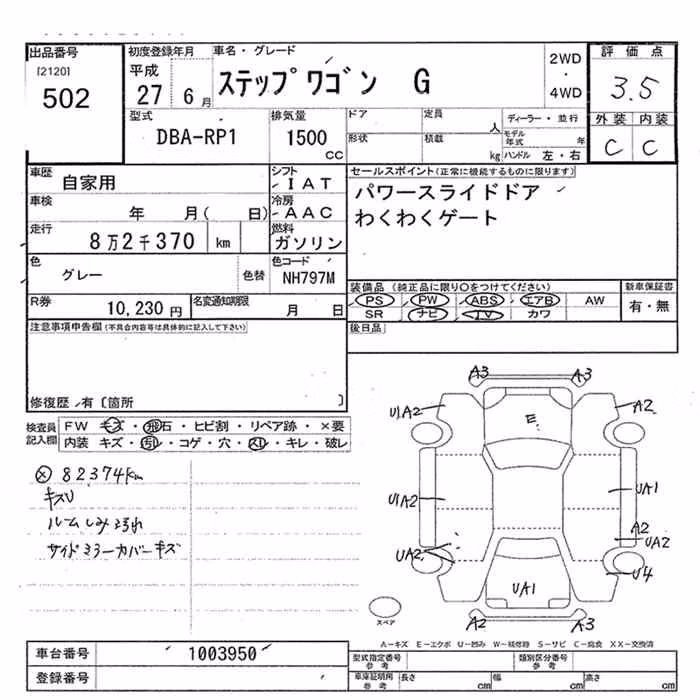 出品番号
[2120]
502
初度登録年月
平成
27 6月
車名・グレード
ステップワゴン G
2WD
・
4WD
評価点
3.5
外装 内装
C C
型式
DBA-RP1
排気量
1500
cc
ドア 定員 人
形状 積載 kg
ディーラー・並行
モデル年式 年
ハンドル 左・右
車歴 自家用
シフト IAT
車検 年 月( 日)
冷房 AAC
走行 8万2千370 km
燃料 ガソリン
色 グレー 色替
色コード NH797M
R券 10,230円
名変通知期限 月 日
セールスポイント(正常に機能するものに限ります)
パワースライドドア
わくわくゲート
装備品 (純正品に限り○をつけてください)
PS PW ABS エアB AW
SR ナビ TV カワ
新車保証書
有・無
後日品
注意事項申告欄(不具合内容等は具体的に記入して下さい)
修復歴 有〔箇所 〕
検査員記入欄
FW キズ・飛石・ヒビ割・リペア跡・×要
内装 キズ・コゲ・穴・キレ・破レ
82374km
キズU
ルームしみ汚れ
サイドミラーカバーキズ
A3 A3
UA2 A2
E
UA2 UA1
A2
UA2 UA2
U4
UA1
A2 A3
スペア
A-キズ E-エクボ U-凹み W-補修跡 S-サビ C-腐食 XX-交換済
車台番号 1003950
登録番号
型式指定番号 参考
類別区分番号 参考
車庫証明用 参考
長さ cm 幅 cm 高さ cm